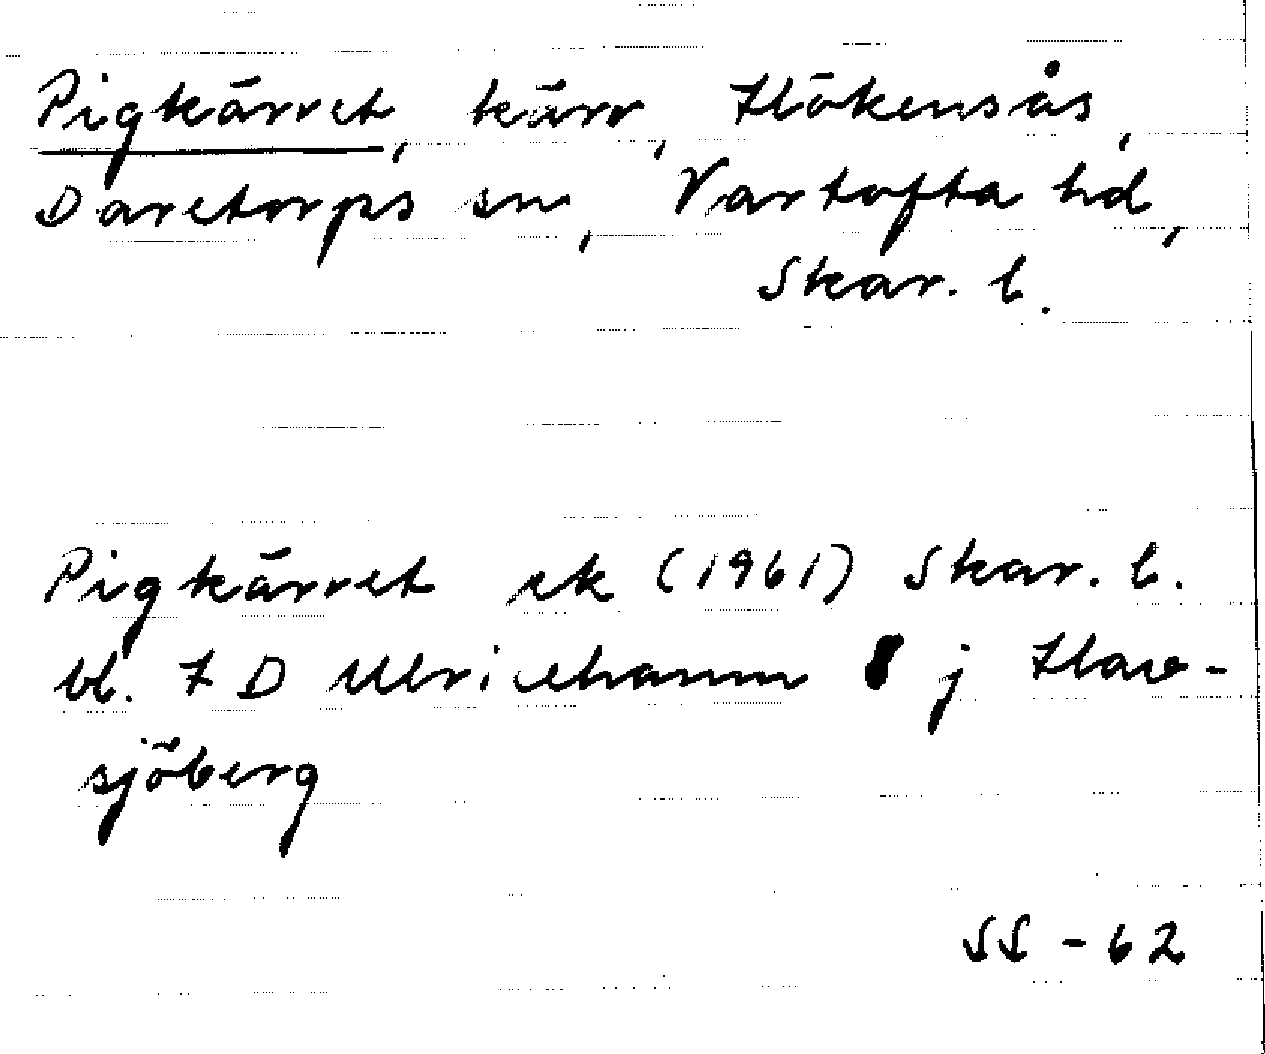 Pigkärret, kärr, Hökensås,
Daretorps sn, Vartofta hd,
Skar. l.
Pigkärret ek (1961) Skar. l.
bl. 7 D Ulricehamn 8 j Hav-
sjöberg
SS - 62